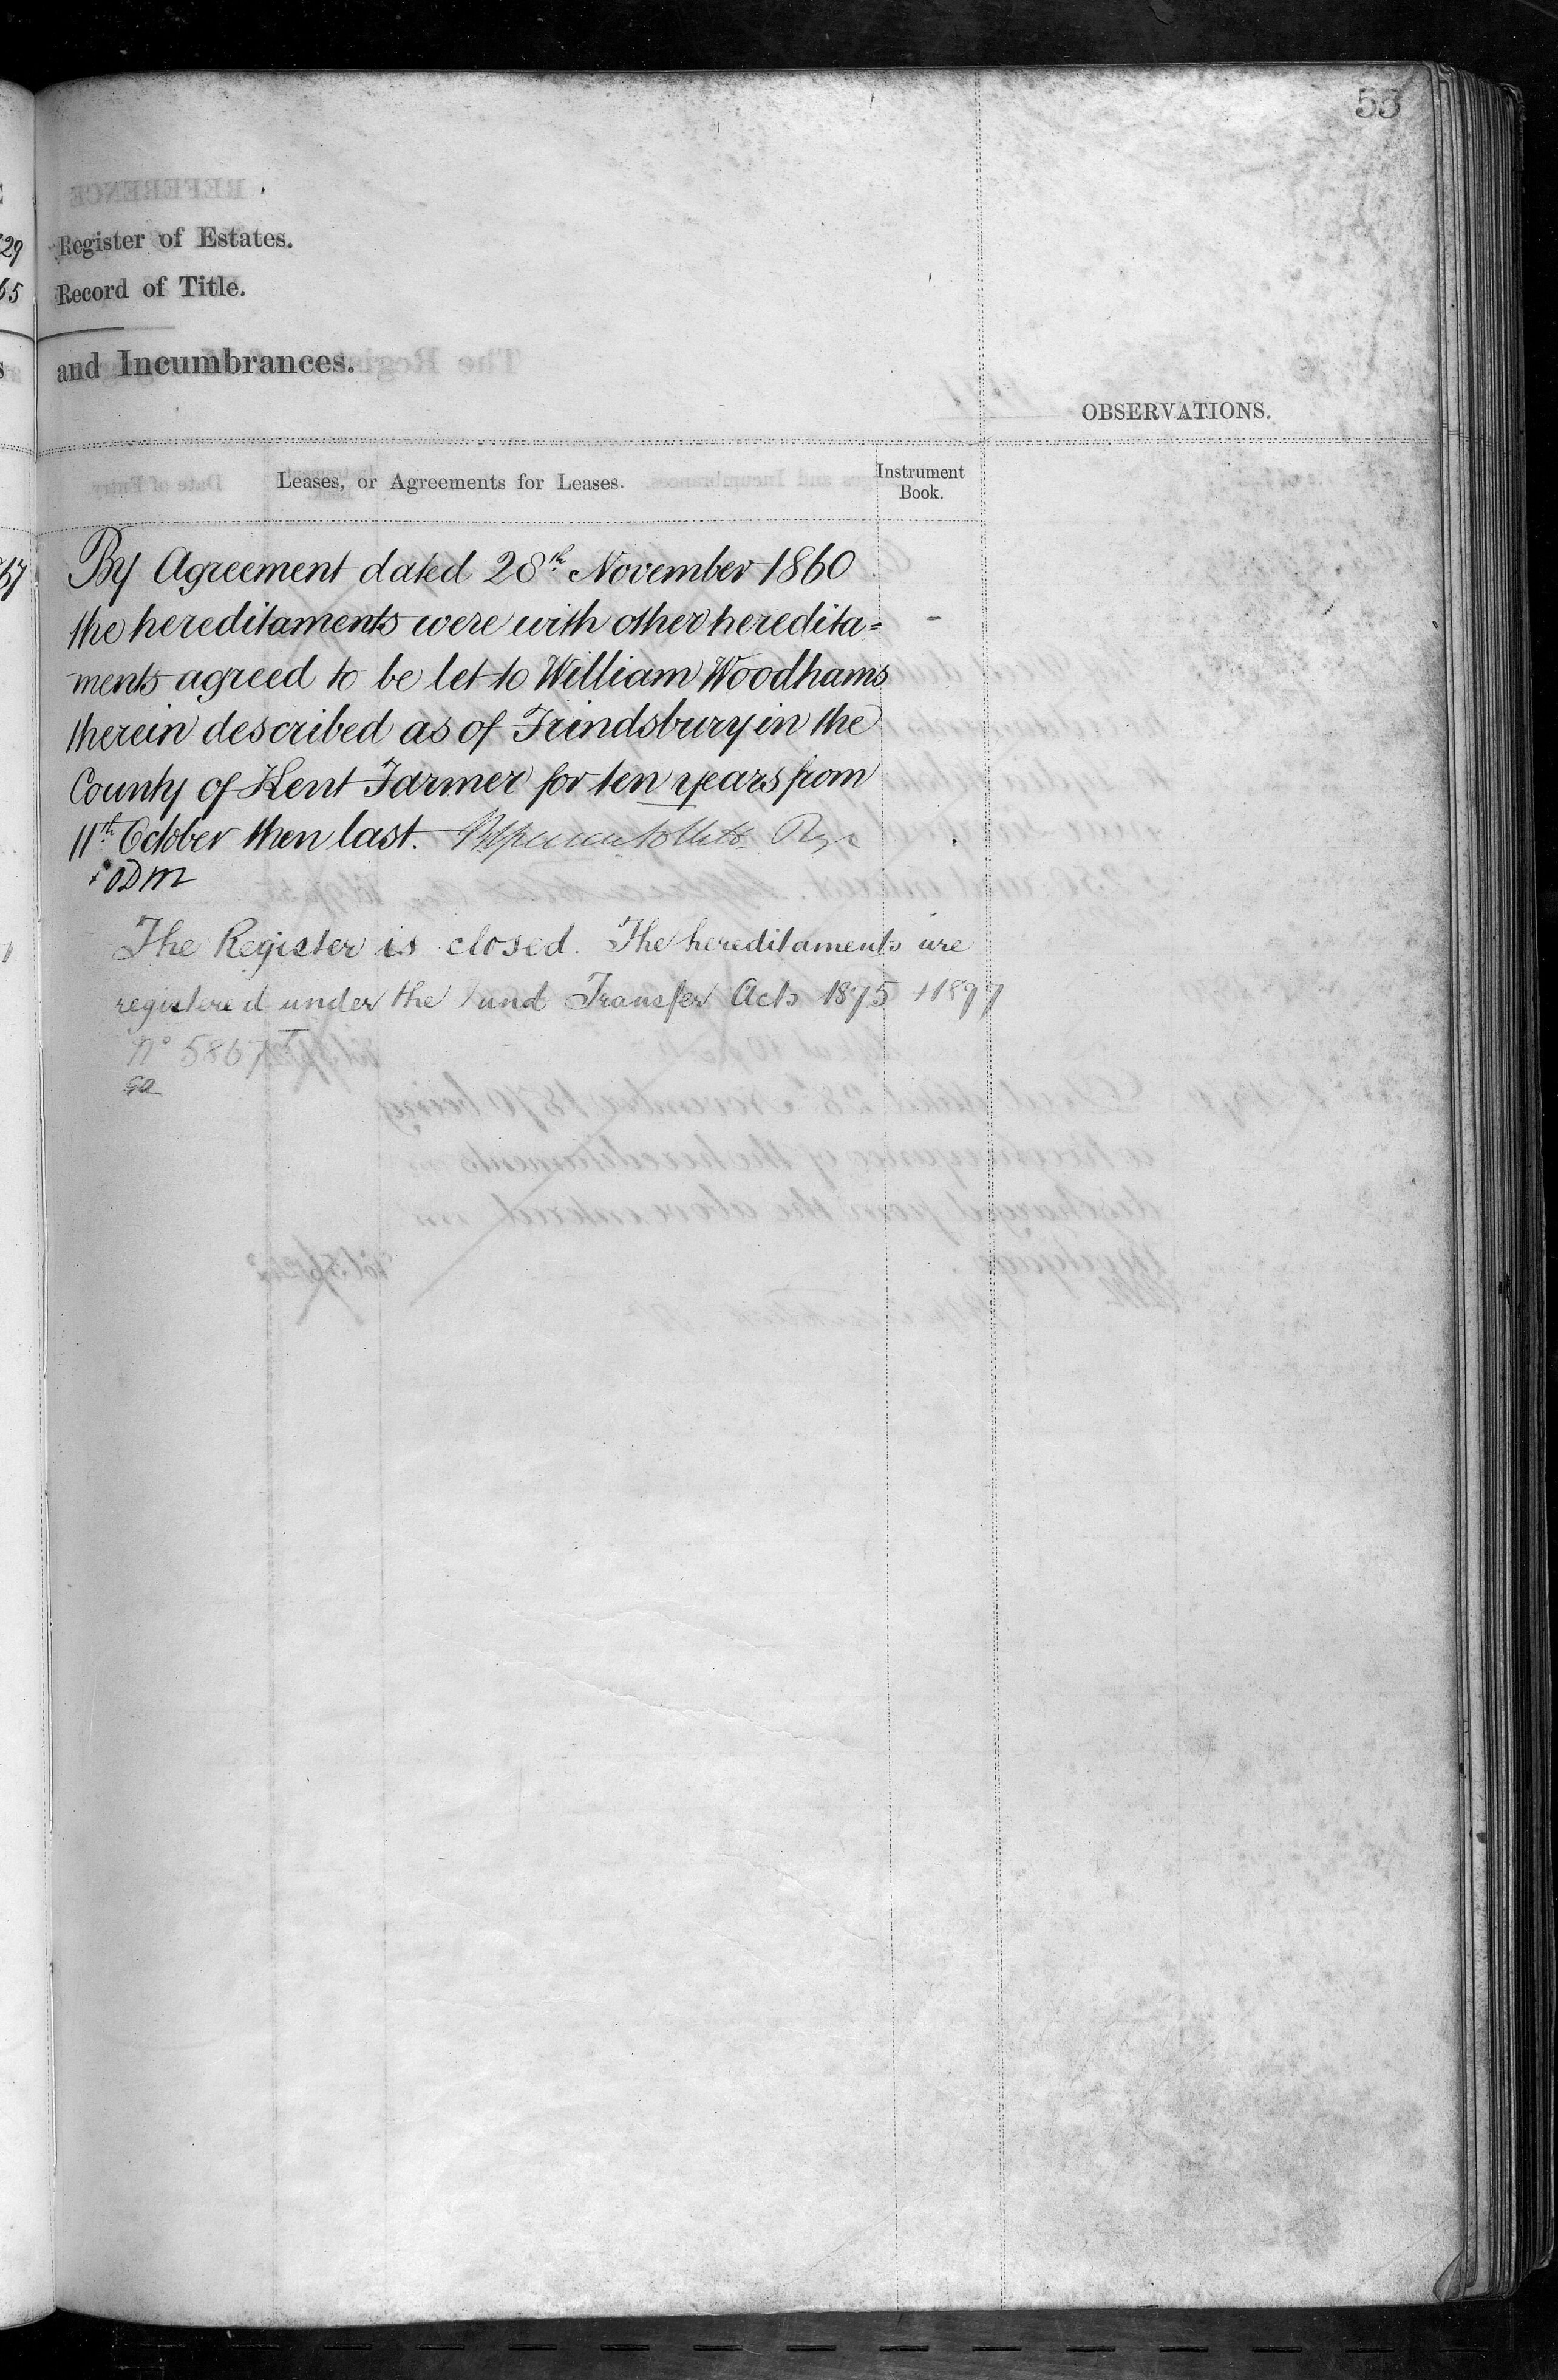 55
Register of Estates.
Record of Title.
and Incumbrances.
OBSERVATIONS.
Leases, or Agreements for Leases.
Instrument
Book.
By Agreement dated 28th November 1860
the hereditaments were with other heredita=
ments agreed to be let to William Woodhams
therein described as of Frindsbury in the
County of Kent Farmer for ten years from
11th October then last.
ODM
The Register is closed. The hereditaments are
registered under the Land Transfer Acts 1875 + 1897
No 5867